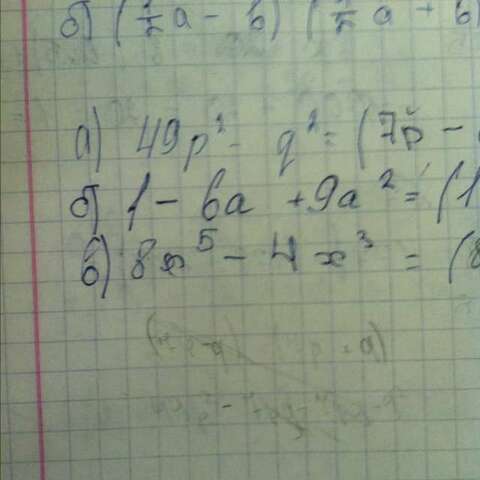 б) (1/2 a - b) (1/2 a + b)
а) 49p² - q² = (7p -
б) 1 - 6a + 9a² = (1
в) 8x⁵ - 4x³ = (8